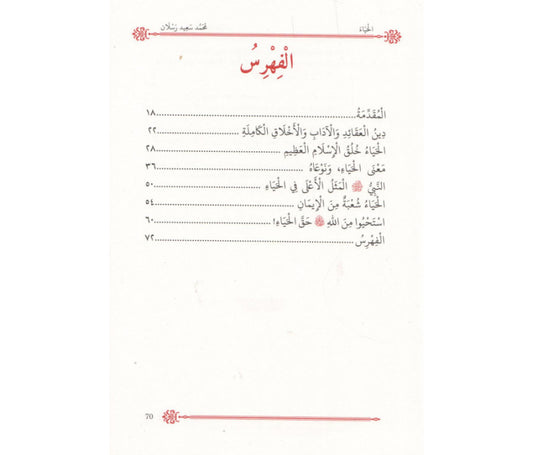 الْحَيَاءُ
مُحَمَّد سَعِيد رَسْلَان
الْفِهْرِسُ
الْمُقَدِّمَةُ ١٨
دِينُ الْعَقَائِدِ وَالْآدَابِ وَالْأَخْلَاقِ الْكَامِلَةِ ٢٢
الْحَيَاءُ خُلُقُ الْإِسْلَامِ الْعَظِيمِ ٢٨
مَعْنَى الْحَيَاءِ، وَنَوْعَاهُ ٣٦
النَّبِيُّ ﷺ الْمَثَلُ الْأَعْلَى فِي الْحَيَاءِ ٥٠
الْحَيَاءُ شُعْبَةٌ مِنَ الْإِيمَانِ ٥٤
اسْتَحْيُوا مِنَ اللهِ حَقَّ الْحَيَاءِ! ٦٠
الْفِهْرِسُ ٧٢
70